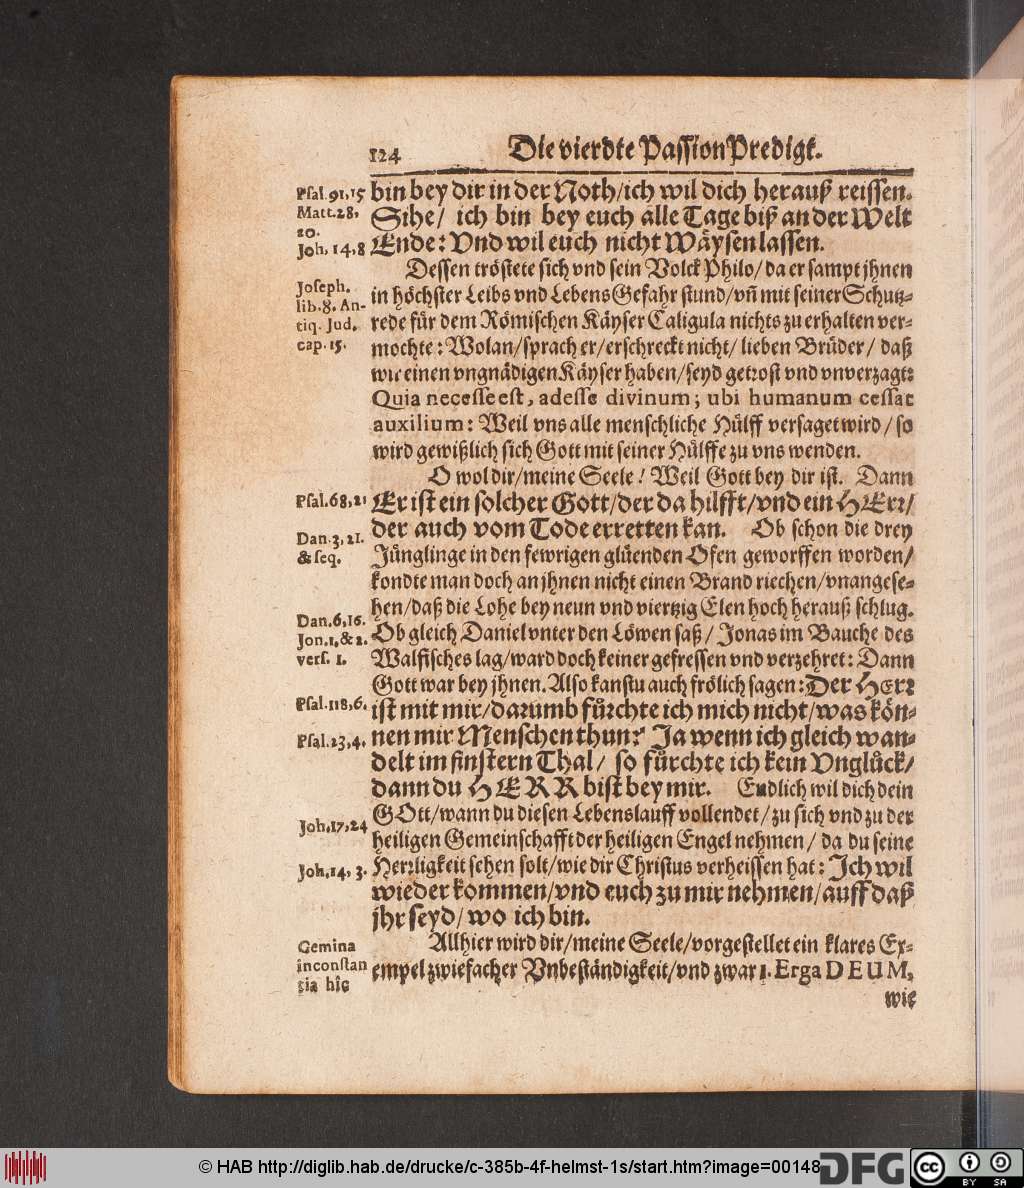 124 Die vierdte Passion Predigt.
Psal. 91, 15 bin bey dir in der Noth/ich wil dich herauß reissen.
Matt. 28, 20. Sihe/ ich bin bey euch alle Tage biß an der Welt
Joh, 14, 8 Ende: Vnd wil euch nicht Wäysen lassen.
Dessen tröstete sich vnd sein Volck Philo/da er sampt jhnen
Joseph. in höchster Leibs vnd LebensGefahr stund/vñ mit seiner Schutz-
lib. 8. An- rede für dem Römischen Käyser Caligula nichts zu erhalten ver-
tiq. Jud. cap. 15. mochte: Wolan/sprach er/erschreckt nicht/lieben Brüder/ daß
wir einen vngnädigen Käyser haben/seyd getrost vnd vnverzagt:
Quia necesse est, adesse divinum; ubi humanum cessat
auxilium: Weil vns alle menschliche Hülff versaget wird/so
wird gewißlich sich Gott mit seiner Hülffe zu vns wenden.
O wol dir/meine Seele! Weil Gott bey dir ist. Dann
Psal. 68, 21 Er ist ein solcher Gott/der da hilfft/vnd ein HErr/
der auch vom Tode erretten kan. Ob schon die drey
Dan. 3, 21. & seq. Jünglinge in den fewrigen glüenden Ofen geworffen worden/
kondte man doch an jhnen nicht einen Brand riechen/vnangese-
hen/daß die Lohe bey neun vnd viertzig Elen hoch herauß schlug.
Dan. 6, 16. Jon. 1, & 2. Ob gleich Daniel vnter den Löwen saß/ Jonas im Bauche des
vers. 1. Walfisches lag/ward doch keiner gefressen vnd verzehret: Dann
Gott war bey jhnen. Also kanstu auch frölich sagen: Der HErr
Psal. 118, 6. ist mit mir/darumb fürchte ich mich nicht/was kön-
Psal. 23, 4. nen mir Menschen thun? Ja wenn ich gleich wan-
delt im finstern Thal/ so fürchte ich kein Vnglück/
dann du HERR bist bey mir. Endlich wil dich dein
GOtt/wann du diesen Lebenslauff vollendet/zu sich vnd zu der
Joh, 17, 24 heiligen Gemeinschafft der heiligen Engel nehmen/ da du seine
Joh, 14, 3. Herrligkeit sehen solt/wie dir Christus verheissen hat: Ich wil
wieder kommen/vnd euch zu mir nehmen/auff daß
jhr seyd/wo ich bin.
Gemina Allhier wird dir/meine Seele/vorgestellet ein klares Ex-
inconstan empel zwiefacher Vnbeständigkeit/vnd zwar 1. Erga DEUM,
tia hîc wie
© HAB http://diglib.hab.de/drucke/c-385b-4f-helmst-1s/start.htm?image=00148 DFG cc BY SA